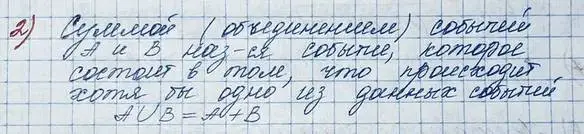 2) Суммой (объединением) событий
А и В наз-ся событие, которое
состоит в том, что происходит
хотя бы одно из данных событий
A∪B = A+B